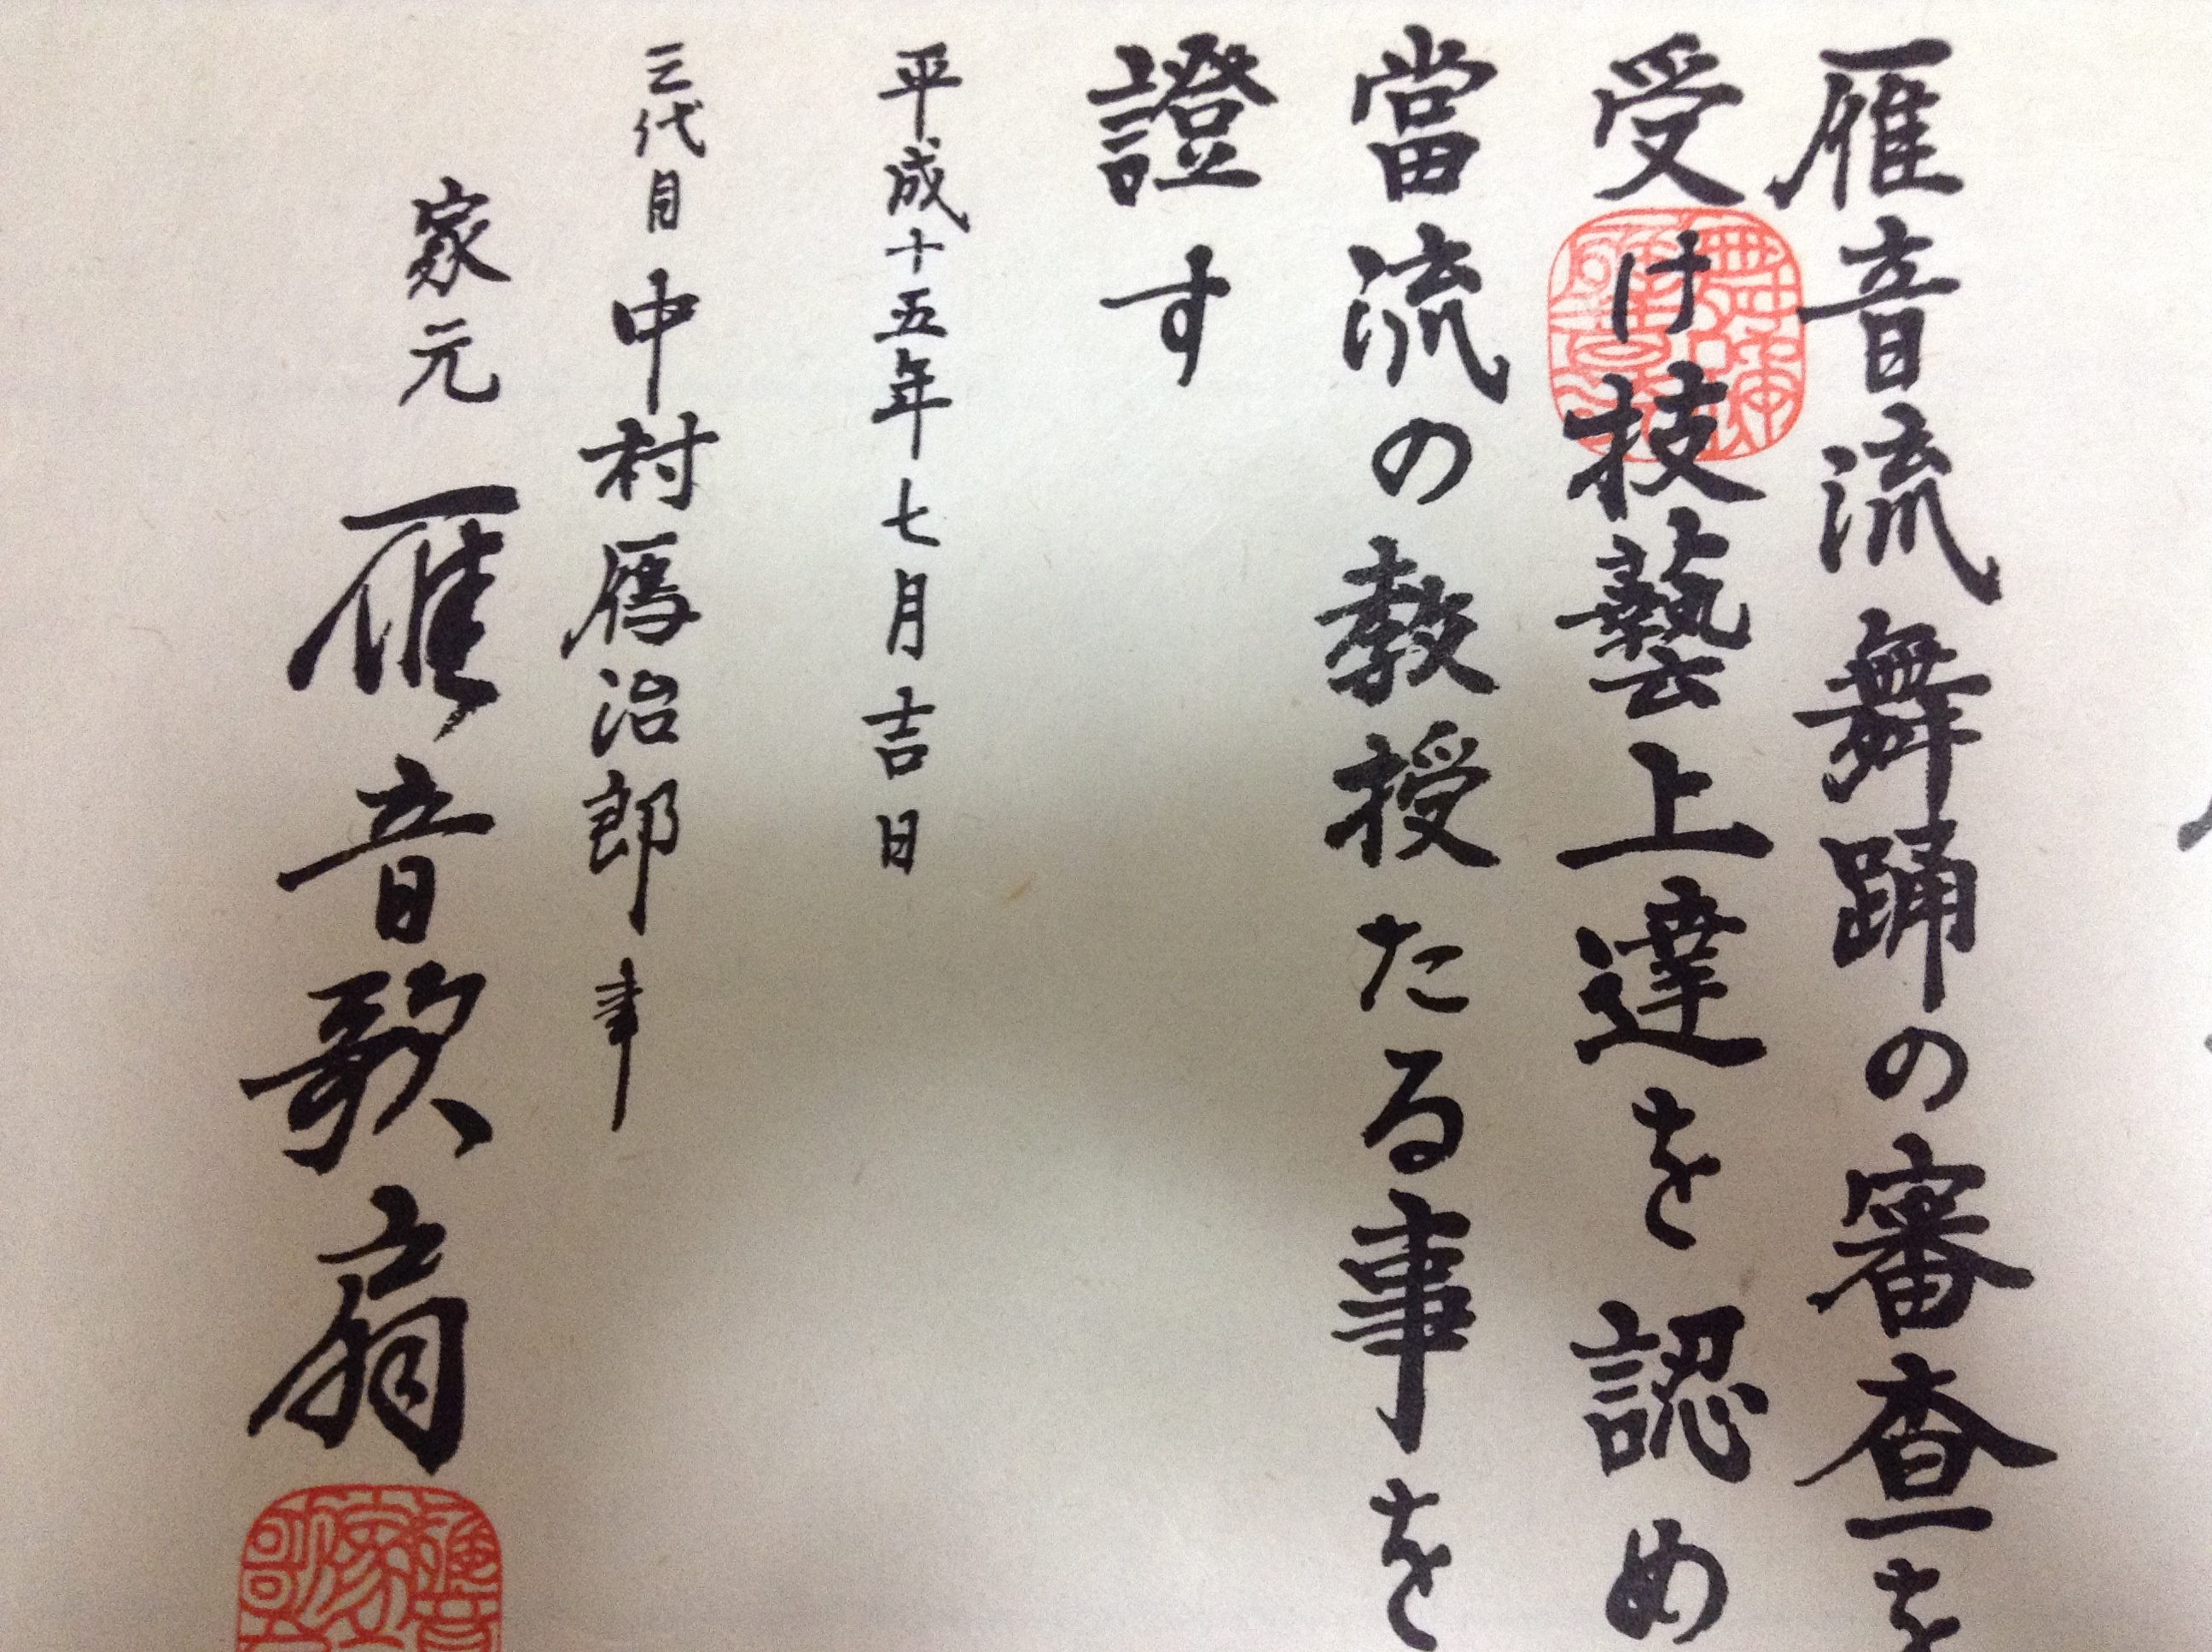 雁音流舞踊の審査を
受け技藝上達を認め
當流の教授たる事を
證す
平成十五年七月吉日
三代目中村鴈治郎事
家元 雁音歌扇